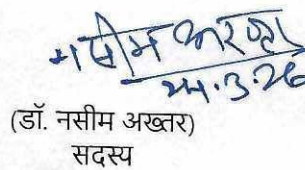 नसीम अख्तर
24.3.26
(डॉ. नसीम अख्तर)
सदस्य